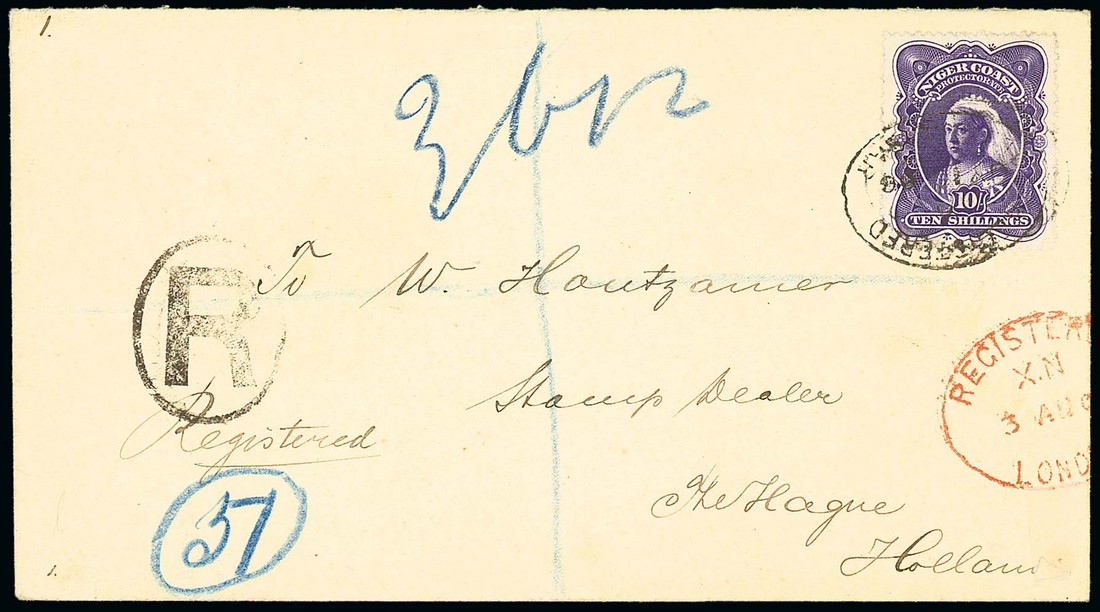 1.
NIGER COAST
PROTECTORATE
10/-
TEN SHILLINGS
R
To W. Houtzamer
Stamp Dealer
The Hague
Holland
Registered
57
REGISTERE
X.N
3 AUG
LOND
1.